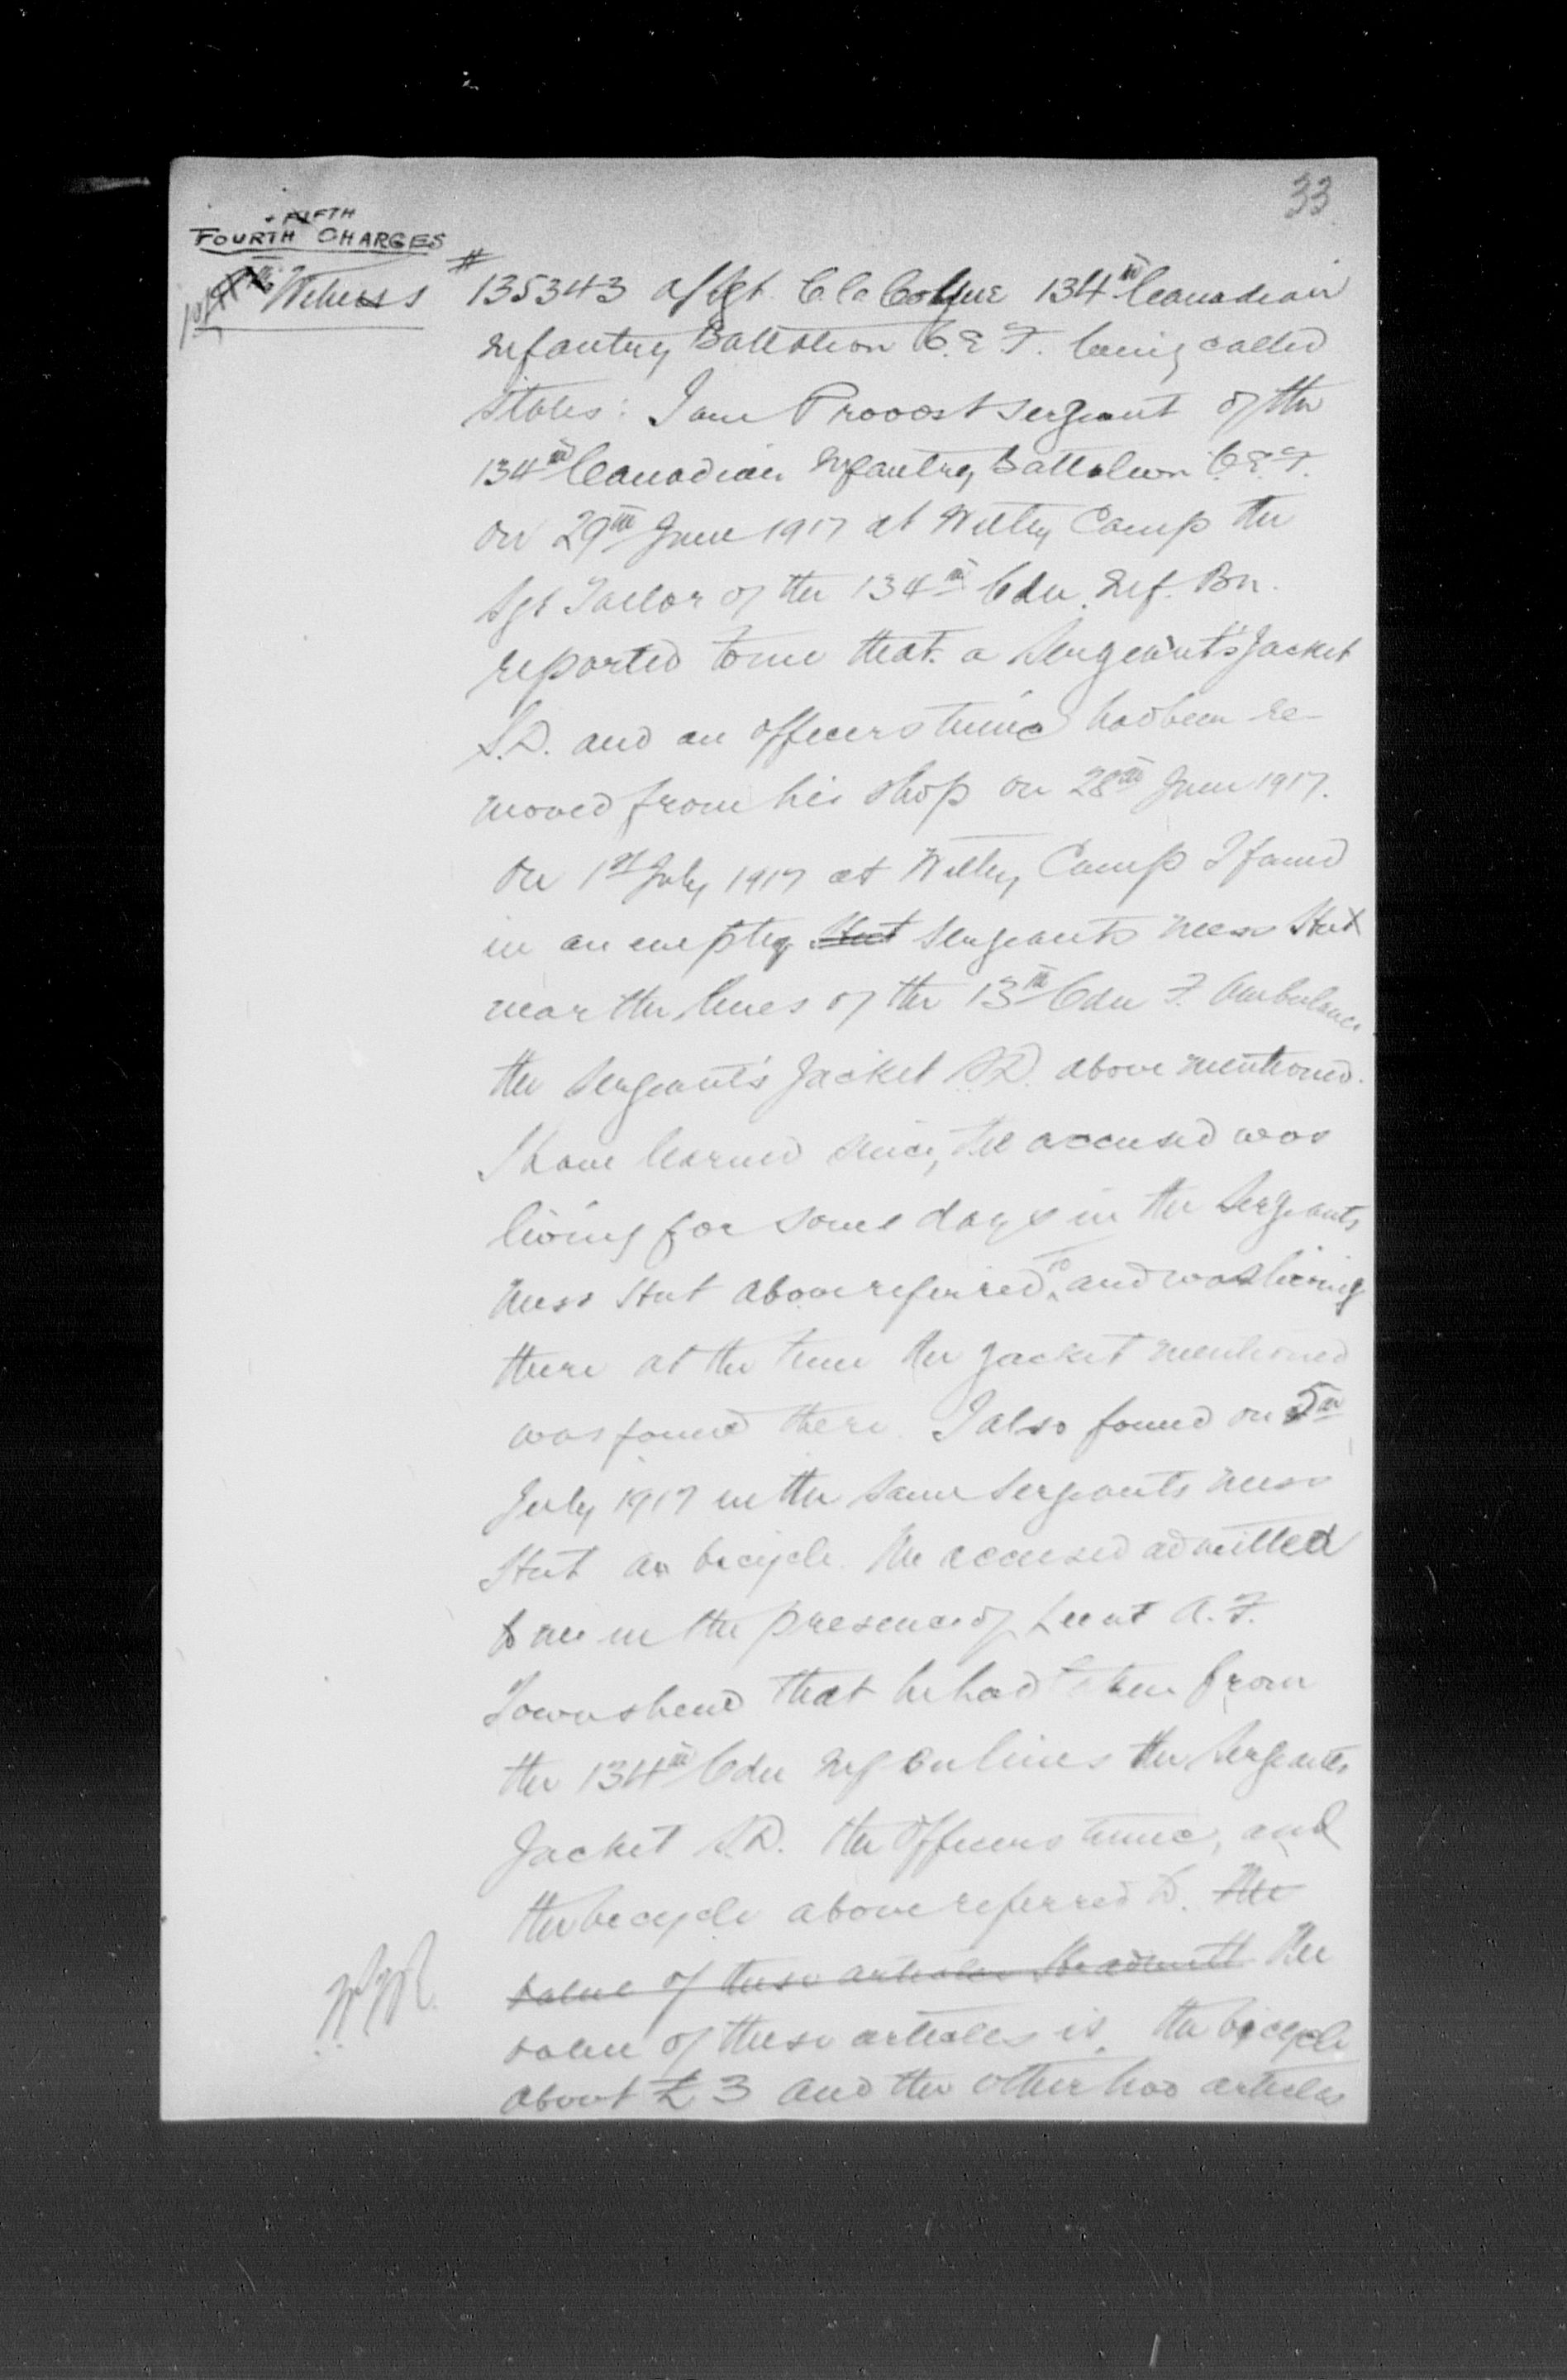 33
+ FIFTH
FOURTH CHARGES
1st Witness
# 135343 a/Sgt. 134th Canadian
Infantry Battalion C.E.F. being called
states: I am Provost Sergeant of the
134th Canadian Infantry Battalion C.E.F.
On 29th June 1917 at Witley Camp the
Sgt Tailor of the 134th Cdn. Inf. Bn.
reported to me that a Sergeant's Jacket
S.D. and an officers tunic had been re-
moved from his shop on 28th June 1917.
On 1st July 1917 at Witley Camp I found
in an empty Hut Sergeants mess Hut
near the lines of the 13th Cdn F. Ambulance
the Sergeant's Jacket S.D. above mentioned.
I have learned since, the accused was
living for some days in the Sergeants
mess Hut above referred to and was living
there at the time the jacket mentioned
was found there. I also found on 5th
July 1917 in the same Sergeants mess
Hut a bicycle. The accused admitted
to me in the presence of Lieut A. F.
Townshend that he had taken from
the 134th Cdn Inf Bn lines the Sergeants
Jacket S.D. the Officers tunic, and
the bicycle above referred to. The
value of these articles The
value of these articles is, the bicycle
about £3 and the other two articles